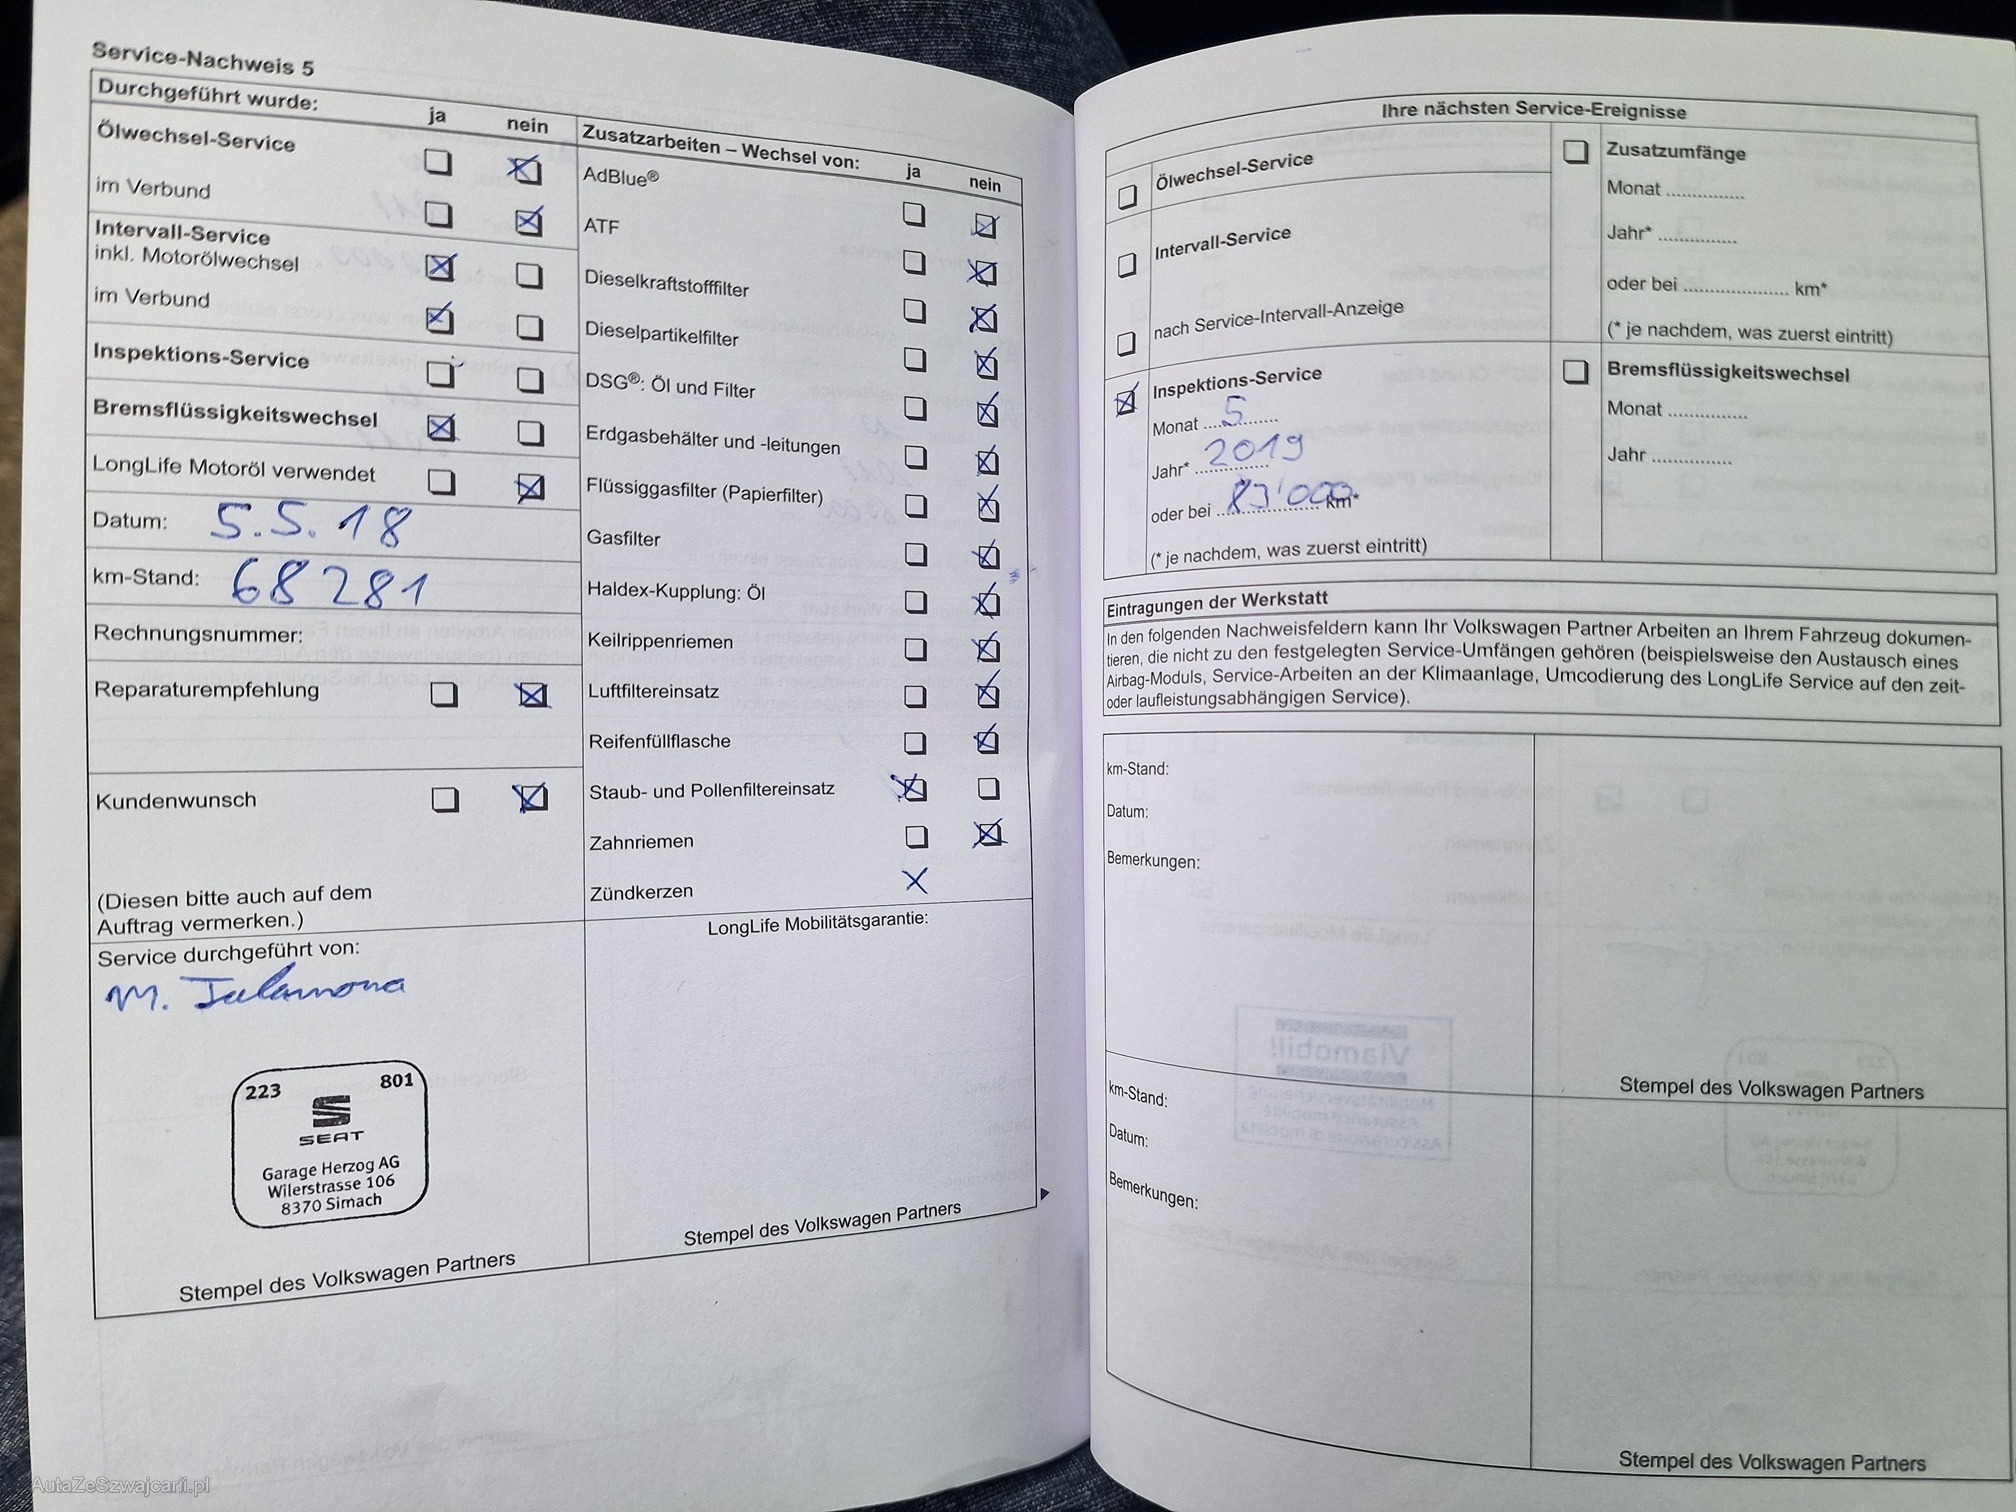 Service-Nachweis 5
Durchgeführt wurde: ja nein
Ölwechsel-Service
im Verbund
Intervall-Service
inkl. Motorölwechsel
im Verbund
Inspektions-Service
Bremsflüssigkeitswechsel
LongLife Motoröl verwendet
Datum: 5.5.18
km-Stand: 68281
Rechnungsnummer:
Reparaturempfehlung
Kundenwunsch
(Diesen bitte auch auf dem
Auftrag vermerken.)
Service durchgeführt von:
M.
223 801
SEAT
Garage Herzog AG
Wilerstrasse 106
8370 Sirnach
Stempel des Volkswagen Partners
Zusatzarbeiten – Wechsel von: ja nein
AdBlue®
ATF
Dieselkraftstofffilter
Dieselpartikelfilter
DSG®: Öl und Filter
Erdgasbehälter und -leitungen
Flüssiggasfilter (Papierfilter)
Gasfilter
Haldex-Kupplung: Öl
Keilrippenriemen
Luftfiltereinsatz
Reifenfüllflasche
Staub- und Pollenfiltereinsatz
Zahnriemen
Zündkerzen
LongLife Mobilitätsgarantie:
Stempel des Volkswagen Partners
Ihre nächsten Service-Ereignisse
Ölwechsel-Service
Intervall-Service
nach Service-Intervall-Anzeige
Inspektions-Service
Monat 5
Jahr* 2019
oder bei 83'000 km*
(* je nachdem, was zuerst eintritt)
Zusatzumfänge
Monat ...............
Jahr* ...............
oder bei .................... km*
(* je nachdem, was zuerst eintritt)
Bremsflüssigkeitswechsel
Monat ...............
Jahr ...............
Eintragungen der Werkstatt
In den folgenden Nachweisfeldern kann Ihr Volkswagen Partner Arbeiten an Ihrem Fahrzeug dokumen-
tieren, die nicht zu den festgelegten Service-Umfängen gehören (beispielsweise den Austausch eines
Airbag-Moduls, Service-Arbeiten an der Klimaanlage, Umcodierung des LongLife Service auf den zeit-
oder laufleistungsabhängigen Service).
km-Stand:
Datum:
Bemerkungen:
Stempel des Volkswagen Partners
km-Stand:
Datum:
Bemerkungen:
Stempel des Volkswagen Partners
AutaZeSzwajcarii.pl